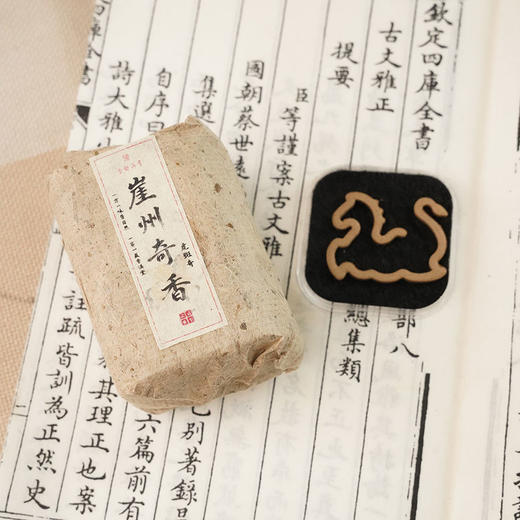 欽定四庫全書
古文雅正
部八
提要
總集類
臣等謹案古文雅正
國朝蔡世遠
集選
別著錄
自序曰
六篇前有
詩大雅
其理正也案
註疏皆訓為正然史
庫全書
崖州奇香
虎斑奇